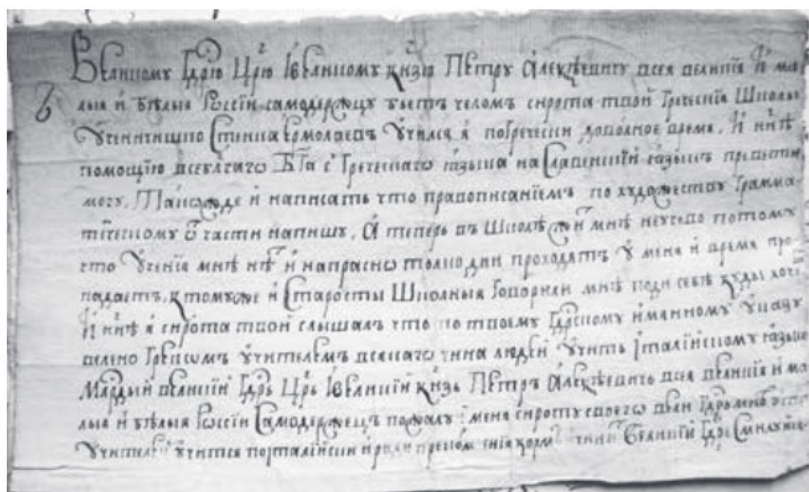 Великому Гдрю Црю ӏ великому кнзю Петру Алеѯѣевичу всея великия и ма
лыя и бѣлыя Росси̇и самодержцу бьетъ челом сирота твой Греческия Школы
учениччишко Стенка Ермолаевъ учился я погречески довольное время, и ннѣ
помощию всеблгаго Бга с Греческаго языка на Славенский языкъ превести
могу, Такожде и написать что правописаниемъ по художеству Грамма
тическому ѿ части напишу, А теперь въ Школѣ мнѣ нечево потому
что учения мнѣ нѣт и напрасно толко дни проходятъ у меня и время про
падаетъ, к томуже и Старосты Школныя Говорили мнѣ поди себѣ куды хочешь
И ннѣ я сирота твой слышалъ что по твоему Гдрскому имянному указу
велено Греком учителемъ всякаго чина людей учить Италийскому языку
Млрдый великий Гдрь Црь ӏ великий кнзь Петръ Алеѯѣевичь всея великия и ма
лыя и бѣлыя Росси̇и Самодержецъ пожалуй меня сироту своего вели Гдрь мнѣ
учителей учится поиталийски и ради кормъ Великий Гдрь Смилуйся